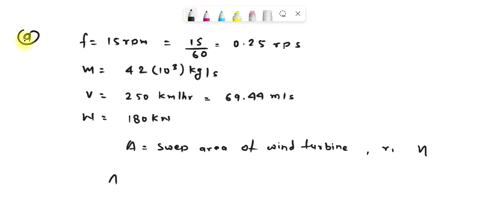 (a) f = 15 rpm = 15/60 = 0.25 rps
m = 42(10³) kg/s
V = 250 km/hr = 69.44 m/s
W = 180 KW
A = swep area of wind turbine , r, η
A